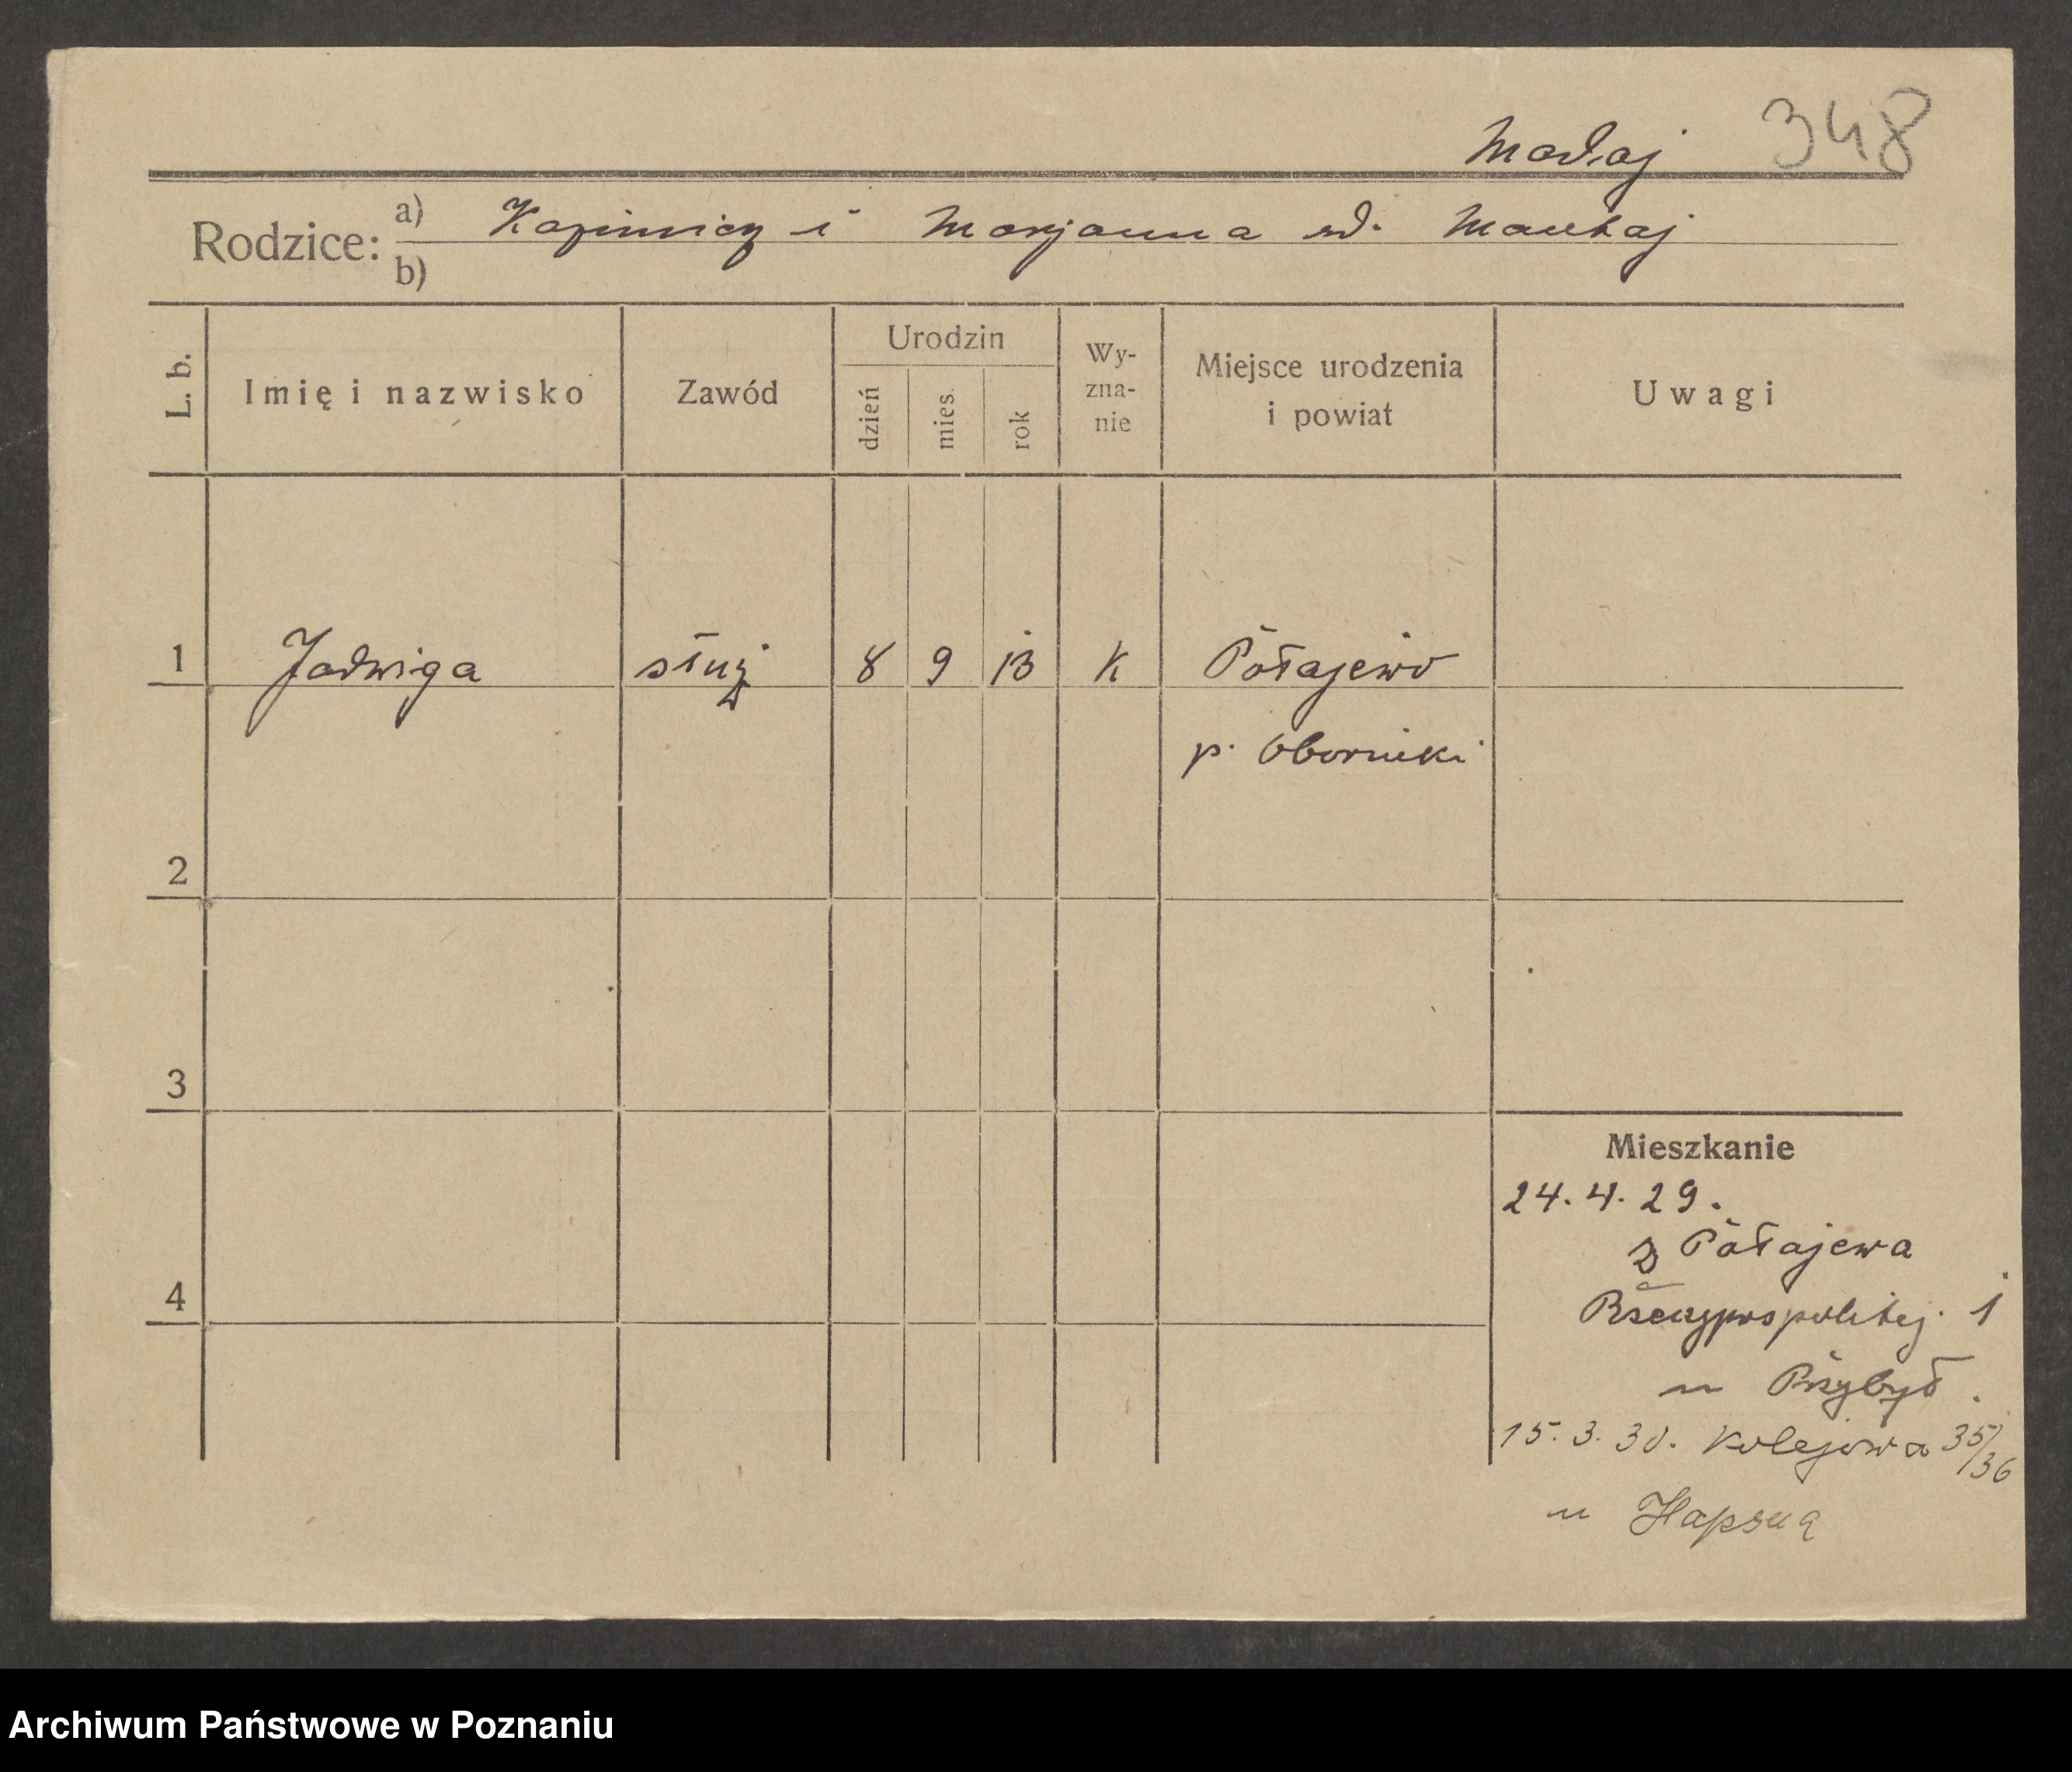 Madaj 348
Rodzice: a) Kazimierz i Marjanna rd. Mantaj
b)
L. b. Imię i nazwisko Zawód Urodzin dzień mies. rok Wy-zna-nie Miejsce urodzenia i powiat Uwagi
1 Jadwiga służ 8 9 13 K Połajewo
p. Oborniki
2
3
4
Mieszkanie
24. 4. 29.
z Połajewa
Rzeczypospolitej. 1
u Przybył.
15. 3. 30. Kolejowa 35/36
u
Archiwum Państwowe w Poznaniu